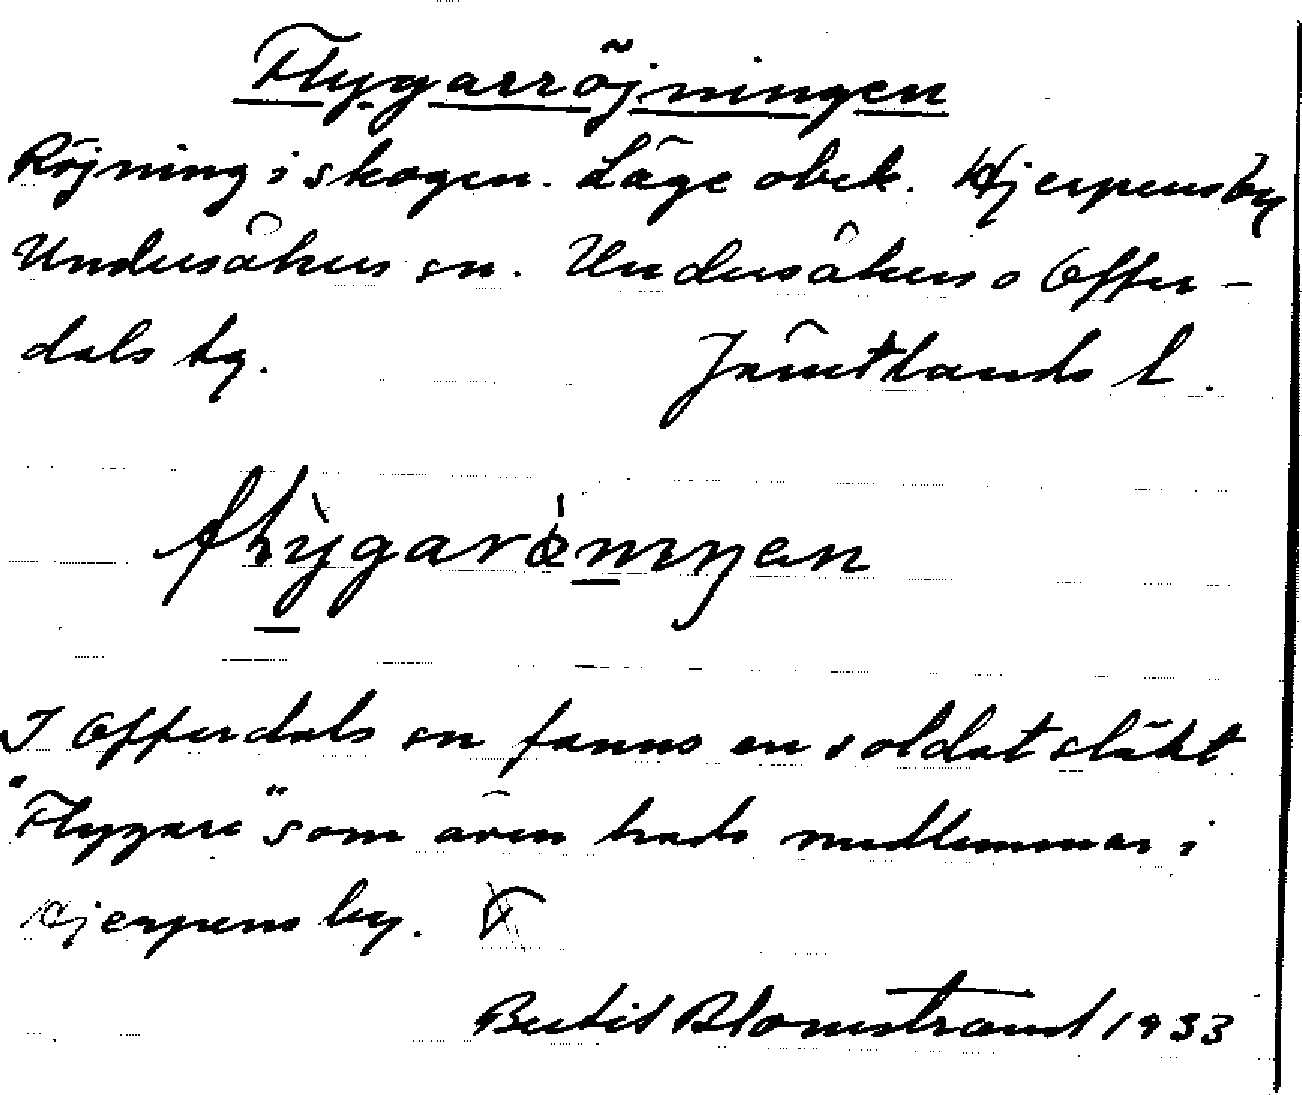 Flygarröjningen
Röjning i skogen. Läge obek. Hjerpens by
Undersåkers sn. Undersåkers o Offer-
dals tg. Jämtlands l.
I Offerdals sn fanns en soldatsläkt
"Flygare" som även hade medlemmar i
Hjerpens by.
Bertil Blomstrand 1933